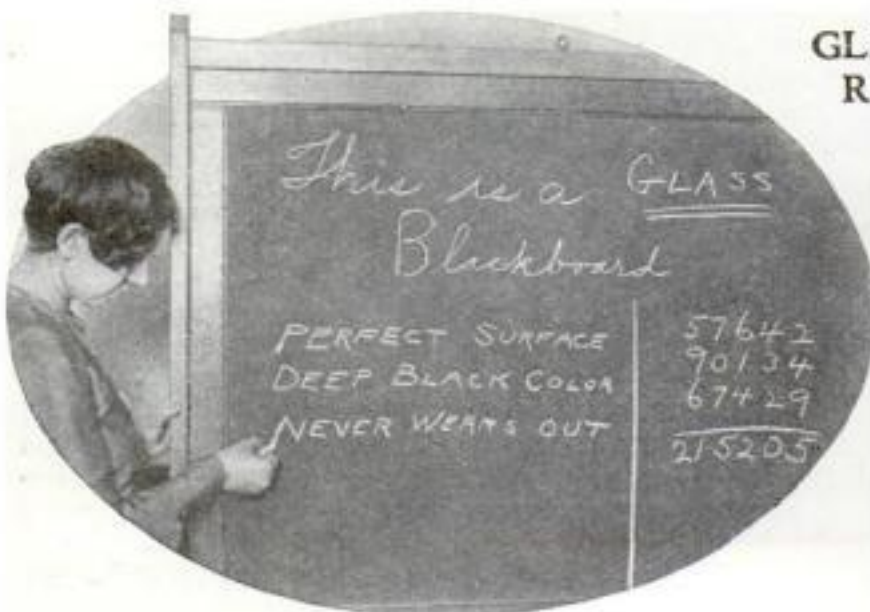 GL
R
This is a GLASS
Blackboard
PERFECT SURFACE
DEEP BLACK COLOR
NEVER WEARS OUT
57642
90134
67429
215205